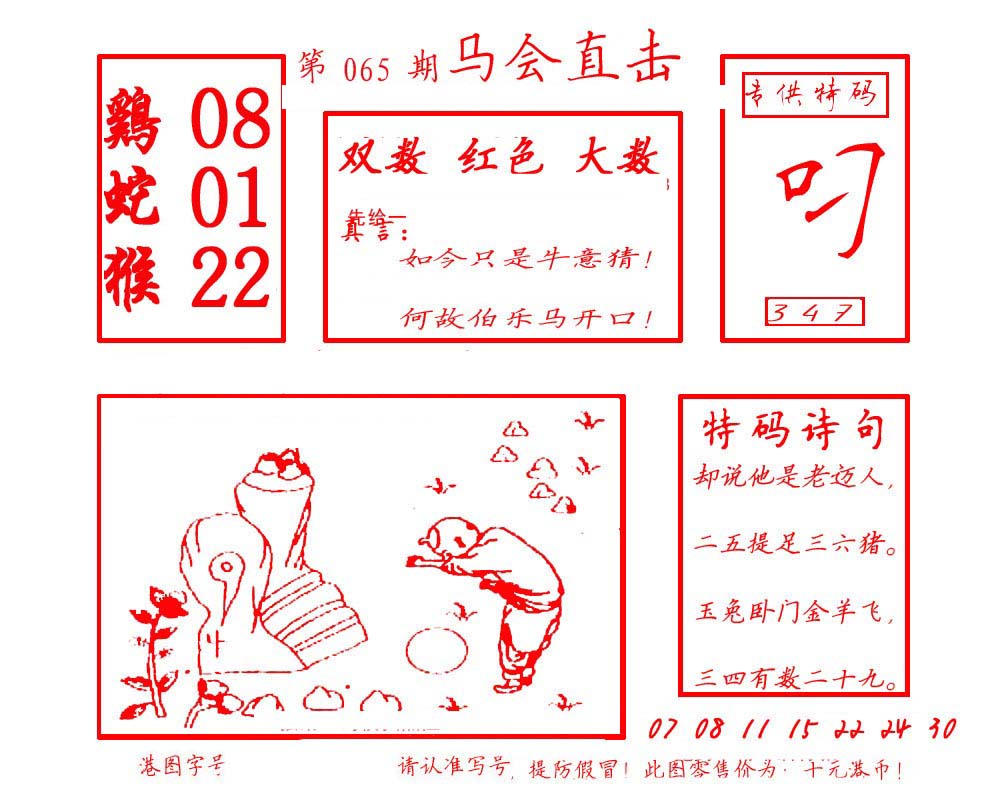 第 065 期 马会直击
鷄 08
蛇 01
猴 22
双数 红色 大数
真言:
如今只是牛意猜!
何故伯乐马开口!
专供特码
叼
347
特码诗句
却说他是老迈人,
二五提足三六猪。
玉兔卧门金羊飞,
三四有数二十九。
07 08 11 15 22 24 30
港图字号
请认准写号, 提防假冒! 此图零售价为: 十元港币!